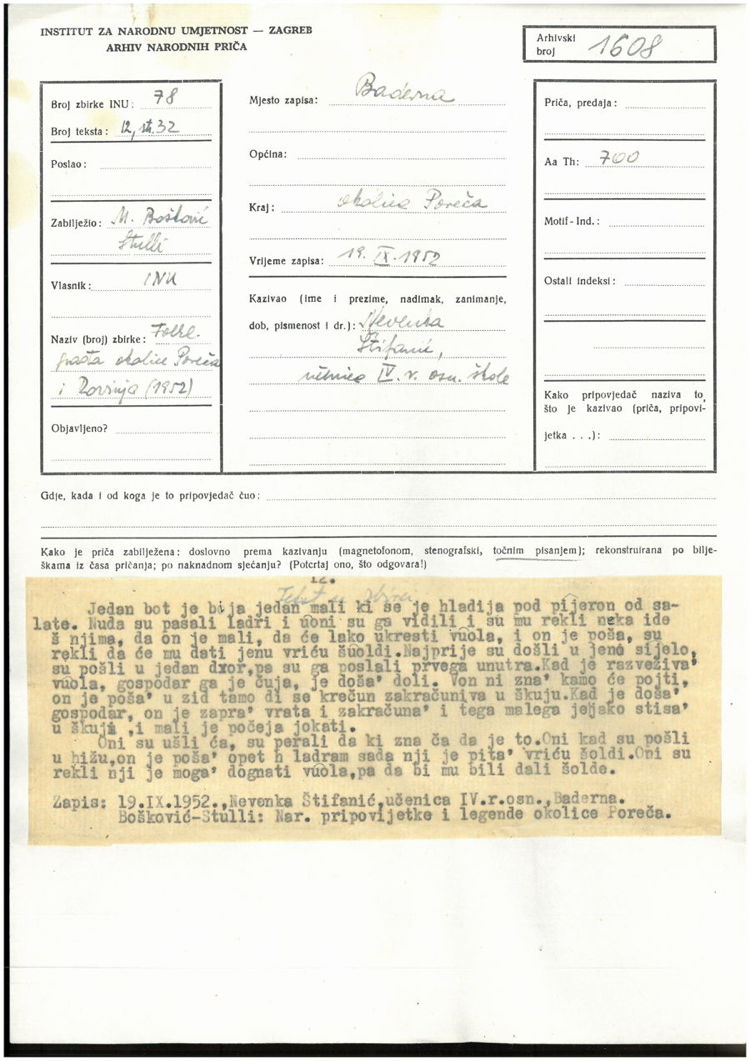 INSTITUT ZA NARODNU UMJETNOST — ZAGREB
ARHIV NARODNIH PRIČA
Arhivski broj 1608
Broj zbirke INU: 78
Broj teksta: 12, str. 32
Poslao:
Zabilježio: M. Bošković
Stulli
Vlasnik: INU
Naziv (broj) zbirke: Folkl.
građa okolice Poreča
i Rovinja (1952)
Objavljeno?
Mjesto zapisa: Baderna
Općina:
Kraj: okolica Poreča
Vrijeme zapisa: 19. IX. 1952
Kazivao (ime i prezime, nadimak, zanimanje,
dob, pismenost i dr.): Nevenka
Štifanić,
učenica IV. r. osn. škole
Priča, predaja:
Aa Th: 700
Motif-Ind.:
Ostali indeksi:
Kako pripovjedač naziva to,
što je kazivao (priča, pripovi-
jetka . . .):
Gdje, kada i od koga je to pripovjedač čuo:
Kako je priča zabilježena: doslovno prema kazivanju (magnetofonom, stenografski, točnim pisanjem); rekonstruirana po bilje-
škama iz časa pričanja; po naknadnom sjećanju? (Potcrtaj ono, što odgovara!)
12.
Jedan bot je bija jedan mali ki se je hladija pod pijeron od sa-
late. Nuda su pasali ladri i uoni su ga vidili i su mu rekli neka ide
š njima, da on je mali, da će lako ukresti vuola, i on je poša, su
rekli da će mu dati jenu vriću šuoldi. Najprije su došli u jeno sijelo,
su pošli u jedan dxor, pa su ga poslali prvega unutra. Kad je razveživa'
vuola, gospodar ga je čuja, je doša' doli. Von ni zna' kamo će pojti,
on je poša' u zid tamo di se krečun zakračuniva u škuju. Kad je doša'
gospodar, on je zapra' vrata i zakračuna' i tega malega jeljsko stisa'
u škuju ,i mali je počeja jokati.
Oni su ušli ća, su perali da ki zna ča da je to. Oni kad su pošli
u hižu, on je poša' opet h ladram sada nji je pita' vriću šoldi. Oni su
rekli nji je moga' dognati vuola, pa da bi mu bili dali šolde.
Zapis: 19.IX.1952., Nevenka Štifanić, učenica IV.r.osn., Baderna.
Bošković-Stulli: Nar. pripovijetke i legende okolice Poreča.